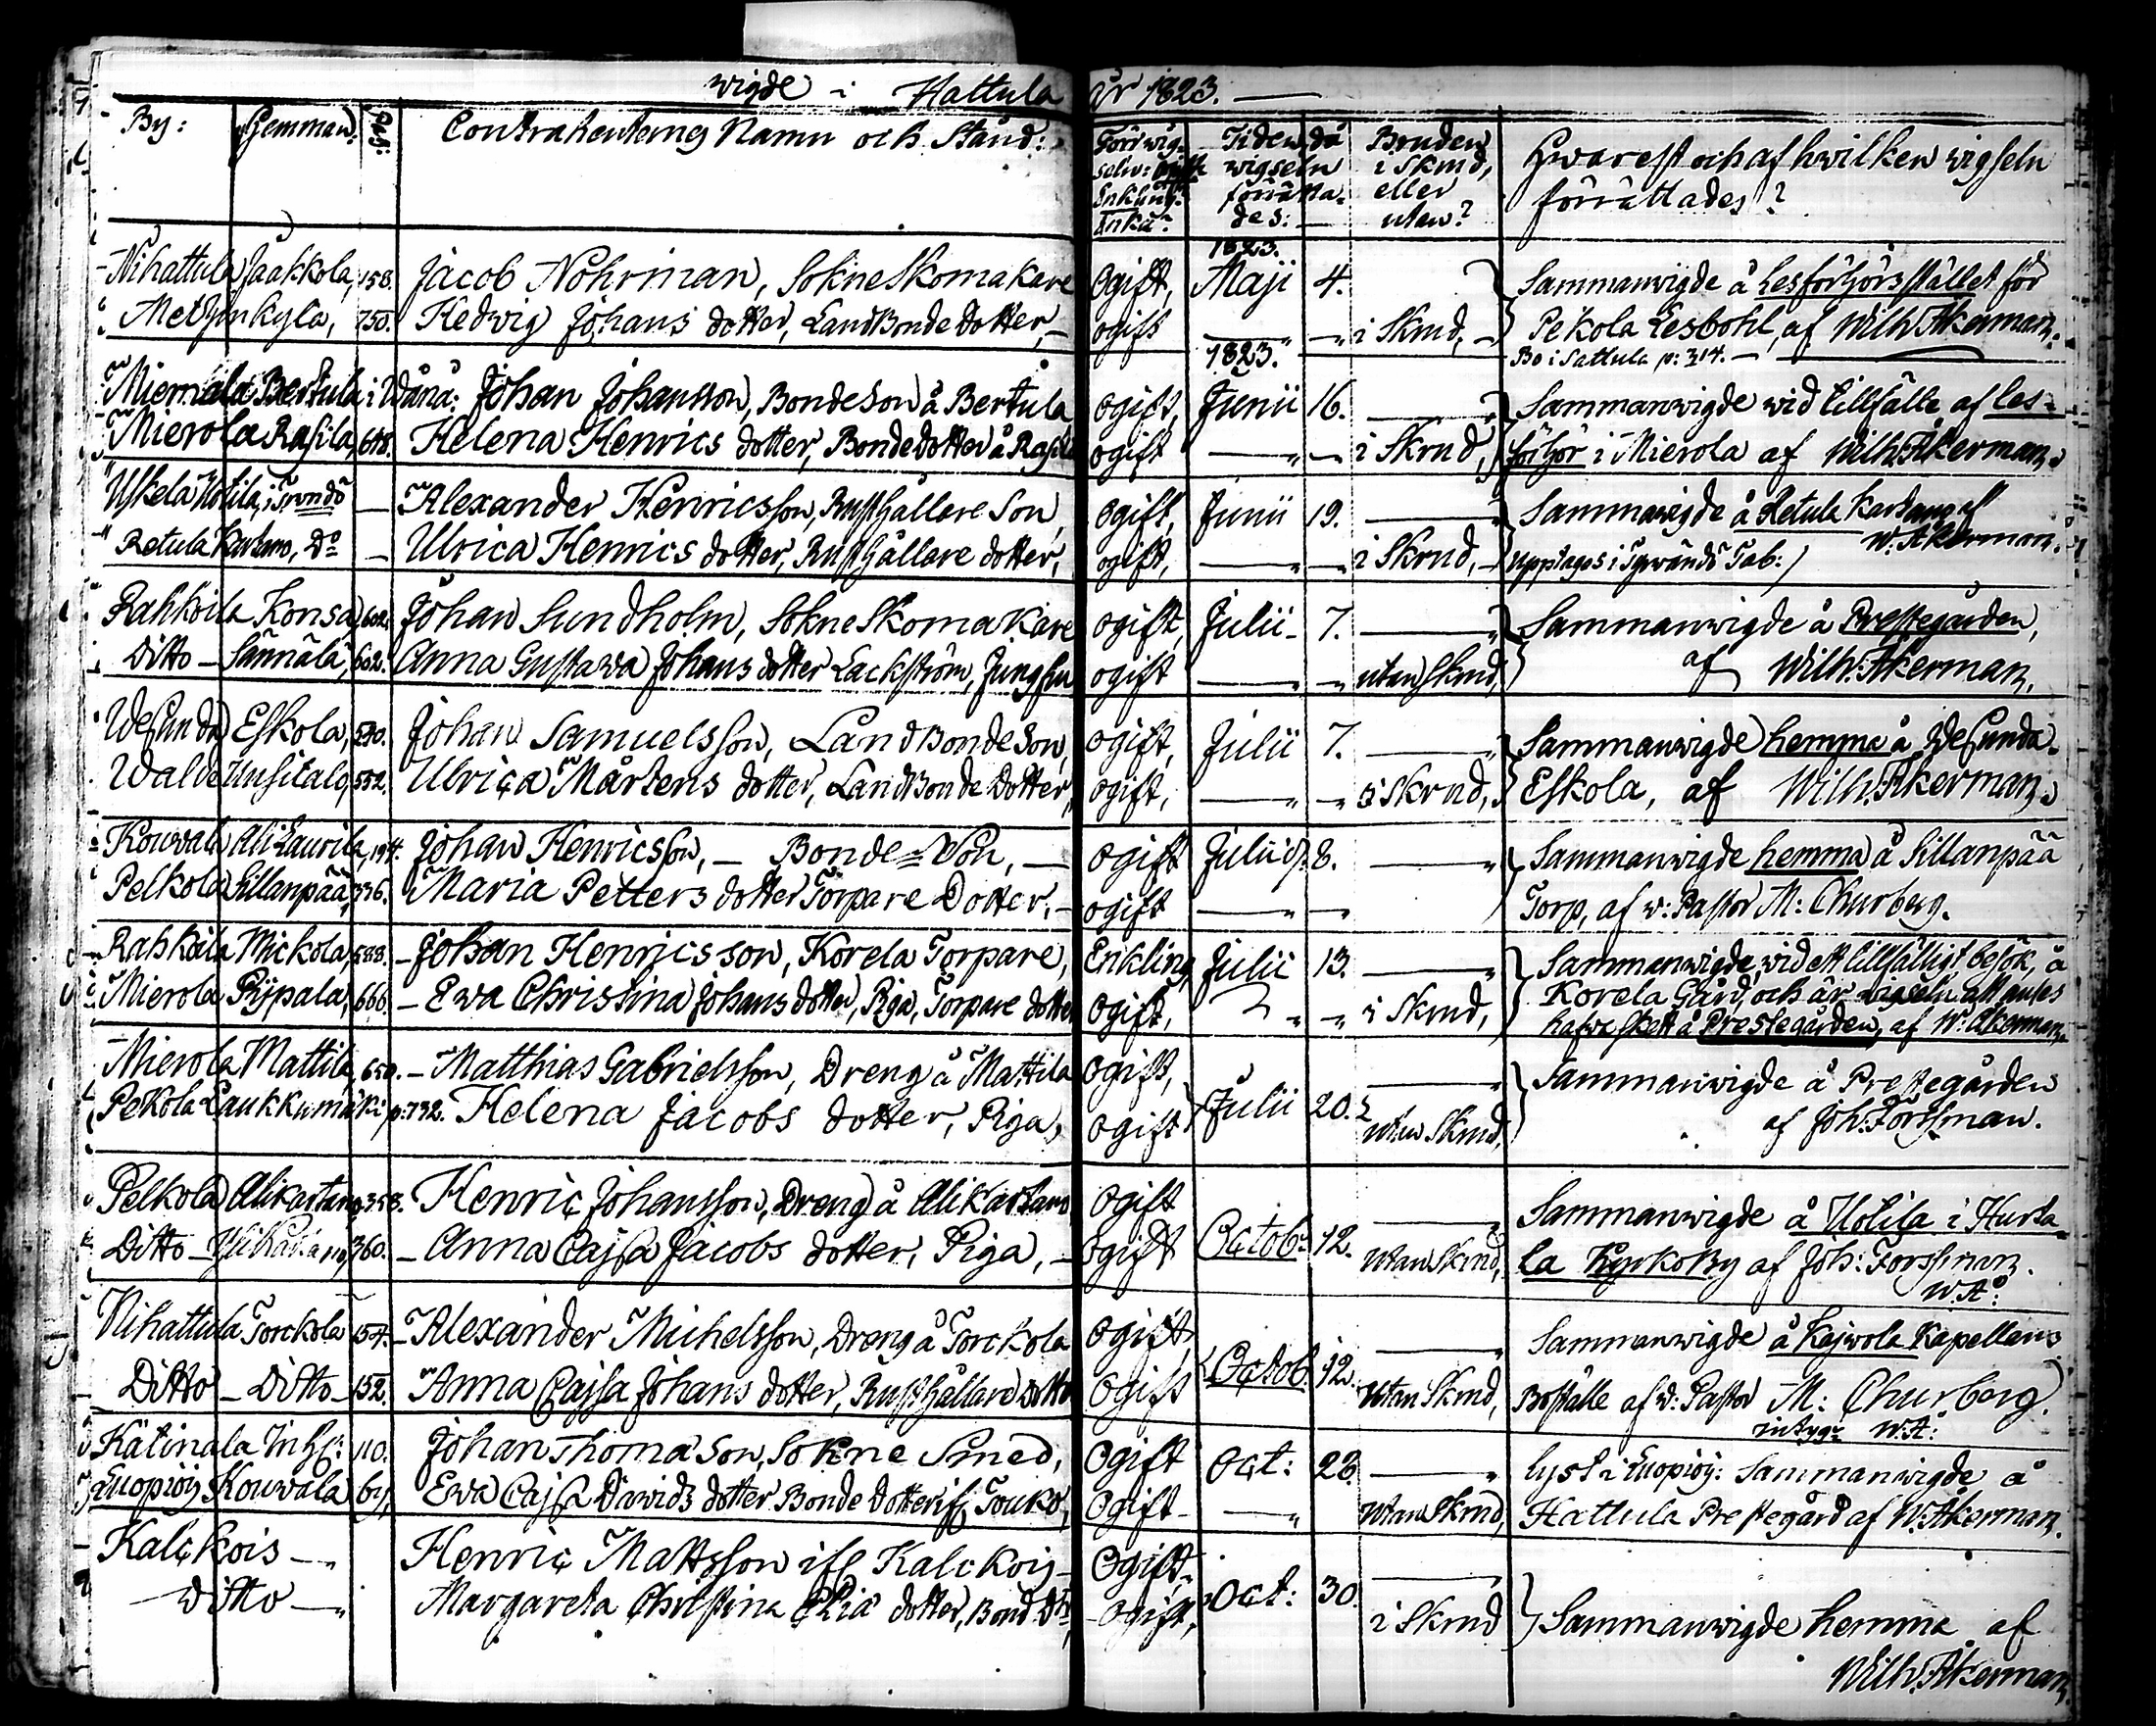 wigde i Hattula år 1823.
By: Hemman: Pag: Contrahenternes Namn och Stånd: Före wigseln: Ogift Enkling Enka? Tiden då wigseln förrättades: Bruden i Skrud, eller utan? Hwarest och af hwilken wigseln förrättades?
1823.
Nihattula Jaakkola, 158. Jacob Nohrman, Sokne Skomakare Ogift, Maji 4. Sammanwigde å Läsförhörs stället för
Metzänkylä, 750. Hedwig Johans dotter, Landbonde dotter, ogift i Skrud, Pekola Läsrothl, af Wilh. Åkerman.
1823. Bo i Sattula p: 314.
Miemala Bertula i Wånå: Johan Johansson, Bondeson å Bertula ogift, Junii 16. Sammanwigde wid tillfälle af läs-
Mierola Rasila, 648. Helena Henrics dotter, Bondedotter å Rasila ogift i Skrud, förhör i Mierola af Wilh. Åkerman.
Uskela Uotila, i Tyrwändö Alexander Henricsson, Rusthållare Son, ogift, Junii 19. Sammanwigde å Retula Kartano af
Retula Kartano, Do Ulrica Henrics dotter, Rusthållare dotter, ogift, i Skrud, upptages i Tyrwändö Tab: W. Åkerman.
Rahkoila Konsa, 602. Johan Sundholm, Sokne Skomakare ogift, Julii 7. Sammanwigde å Prestegården,
Ditto Sännälä, 602. Anna Gustawa Johans dotter Lackström, Jungfru ogift utan Skrud, af Wilh. Åkerman.
Wesunda Eskola, 240. Johan Samuelsson, Landbonde Son, ogift, Julii 7. Sammanwigde hemma å Wesunda
Walde Uusitalo, 552. Ulrica Mårtens dotter, Landbonde Dotter, ogift, i Skrud, Eskola, af Wilh. Åkerman.
Kouvala Ali Laurila, 194. Johan Henricsson, Bonde Son, ogift Julii 8. Sammanwigde hemma å Sillanpää
Pelkola Sillanpää, 336. Maria Petters dotter Torpare Dotter, ogift Torp, af v: Pastor M: Churberg.
Rahkoila Mickola, 588. Johan Henricsson, Korela Torpare, Enkling, Julii 13. Sammanwigde, wid ett tillfälligt besök, å
Mierola Pijpala, 666. Ewa Christina Johans dotter, Piga, Torpare dotter Ogift, i Skrud, Korela Gård, och är wigseln att anses
hafwa skett å Prestegården, af W: Åkerman.
Mierola Mattila, 650. Matthias Gabrielsson, Dreng å Mattila Ogift, Sammanwigde å Prestegården
Pekola Laukkumäki, p: 732. Helena Jacobs dotter, Piga, Ogift Julii 20. utan Skrud, af Joh: Forssman.
Pelkola Alikartano, 358. Henric Johansson, Dreng å Alikartano Ogift Sammanwigde å Uotila i Hurta-
Ditto Ylikartano, 360. Anna Cajsa Jacobs dotter, Piga, Ogift Octob: 12. utan Skrud, la Kyrkoby af Joh: Forssman.
W. Å.
Nihattula Torckola 154. Alexander Michelsson, Dreng å Torckola Ogift, Sammanwigde å Kajwola Kapellans
Ditto Ditto 152. Anna Cajsa Johans dotter, Rusthållare dotter Ogift Octob: 12. utan Skrud, Boställe af v: Pastor M: Churberg.
intyg: W. Å.
Kätinala Inhs: 110. Johan Thomasson, Sokne Smed, Ogift Oct: 23. lyst i Luopioij: Sammanwigde å
Luopioij Kouvala by, Ewa Cajsa Davids dotter Bonde dotter ifr: Touko, Ogift utan Skrud, Hattula Prestegård af W. Åkerman.
Kalckois Henric Mattsson ifr: Kalckois Ogift
Ditto Margareta Christina Eliæ dotter, Bond: Dtr, Ogift, Oct: 30. i Skrud Sammanwigde hemma af
Wilh. Åkerman